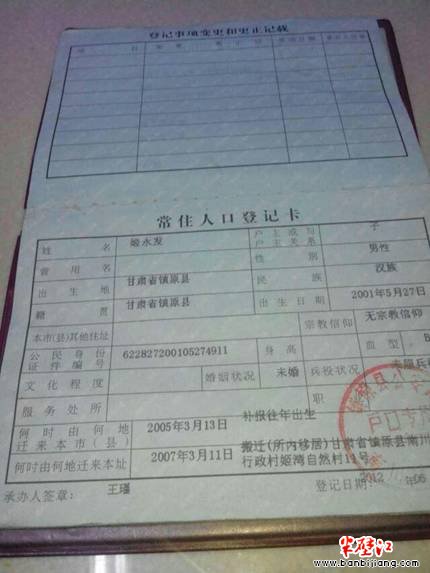 登记事项变更和更正记载
常住人口登记卡
姓名 姬永发 户主或与户主关系 子
曾用名 性别 男性
出生地 甘肃省镇原县 民族 汉族
籍贯 甘肃省镇原县 出生日期 2001年5月27日
本市(县)其他住址 宗教信仰 无宗教信仰
公民身份证件编号 622827200105274911 身高 血型
文化程度 婚姻状况 未婚 兵役状况
服务处所 职
何时由何地迁来本市(县) 2005年3月13日 补报往年出生
何时由何地迁来本址 2007年3月11日 搬迁(所内移居)甘肃省镇原县南川
行政村姬湾自然村11号
承办人签章: 王瑾 登记日期: 2012年06
半壁江
www.banbijiang.com